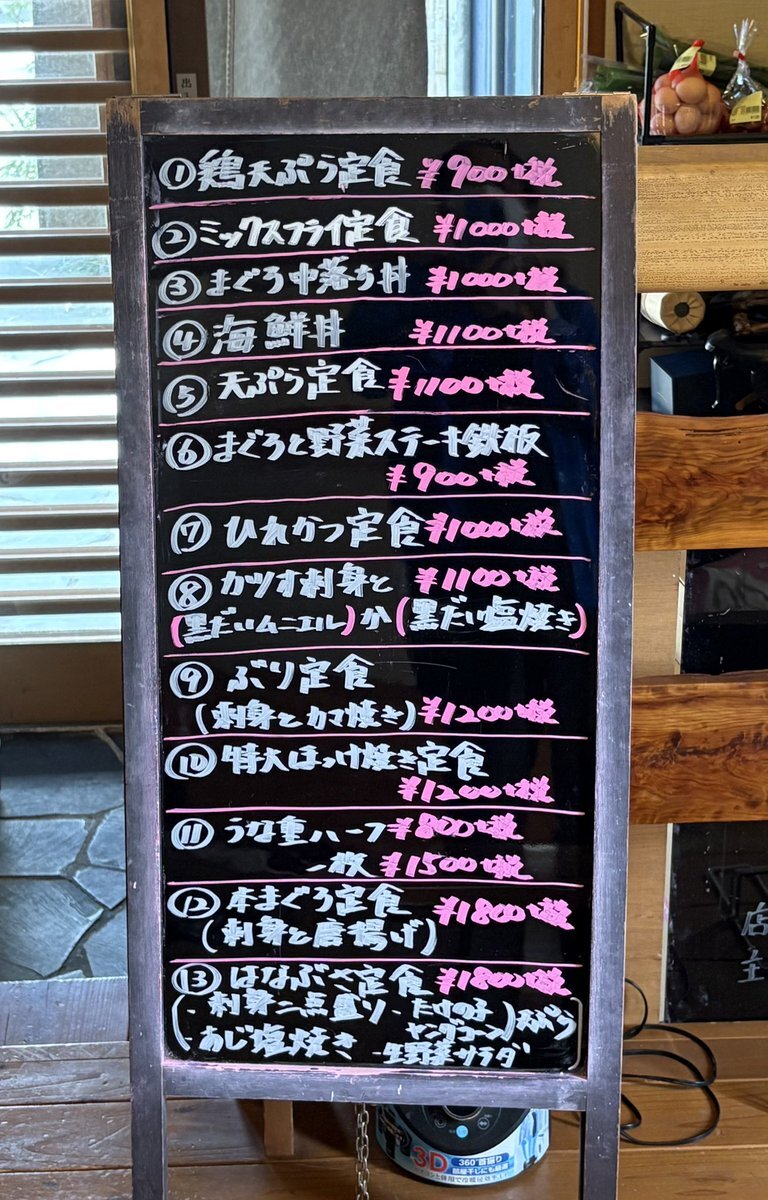 ①鶏天ぷら定食 ¥900+税
②ミックスフライ定食 ¥1000+税
③まぐろ中落ち丼 ¥1000+税
④海鮮丼 ¥1100+税
⑤天ぷら定食 ¥1100+税
⑥まぐろと野菜ステーキ鉄板
¥900+税
⑦ひれかつ定食 ¥1000+税
⑧カツオ刺身と ¥1100+税
(黒だいムニエル)か(黒だい塩焼き)
⑨ぶり定食
(刺身とカマ焼き) ¥1200+税
⑩特大ほっけ焼き定食
¥1200+税
⑪うな重ハーフ ¥800+税
一枚 ¥1500+税
⑫本まぐろ定食 ¥1800+税
(刺身と唐揚げ)
⑬はなぶさ定食 ¥1800+税
(・刺身二点盛り・たけの子
ヤングコーン)天ぷら
あじ塩焼き ・生野菜サラダ
店主
3D
360°首振り
部屋干しにも最適